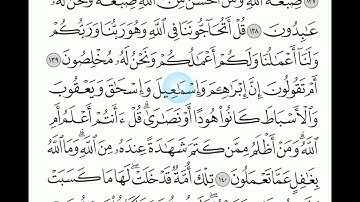 صِبْغَةَ ٱللَّهِ وَمَنْ أَحْسَنُ مِنَ ٱللَّهِ صِبْغَةً وَنَحْنُ لَهُۥ
عَٰبِدُونَ ١٣٨ قُلْ أَتُحَآجُّونَنَا فِى ٱللَّهِ وَهُوَ رَبُّنَا وَرَبُّكُمْ
وَلَنَآ أَعْمَٰلُنَا وَلَكُمْ أَعْمَٰلُكُمْ وَنَحْنُ لَهُۥ مُخْلِصُونَ ١٣٩
أَمْ تَقُولُونَ إِنَّ إِبْرَٰهِـۧمَ وَإِسْمَٰعِيلَ وَإِسْحَٰقَ وَيَعْقُوبَ
وَٱلْأَسْبَاطَ كَانُوا۟ هُودًا أَوْ نَصَٰرَىٰ ۗ قُلْ ءَأَنتُمْ أَعْلَمُ أَمِ
ٱللَّهُ ۗ وَمَنْ أَظْلَمُ مِمَّن كَتَمَ شَهَٰدَةً عِندَهُۥ مِنَ ٱللَّهِ ۗ وَمَا ٱللَّهُ
بِغَٰفِلٍ عَمَّا تَعْمَلُونَ ١٤٠ تِلْكَ أُمَّةٌ قَدْ خَلَتْ ۖ لَهَا مَا كَسَبَتْ